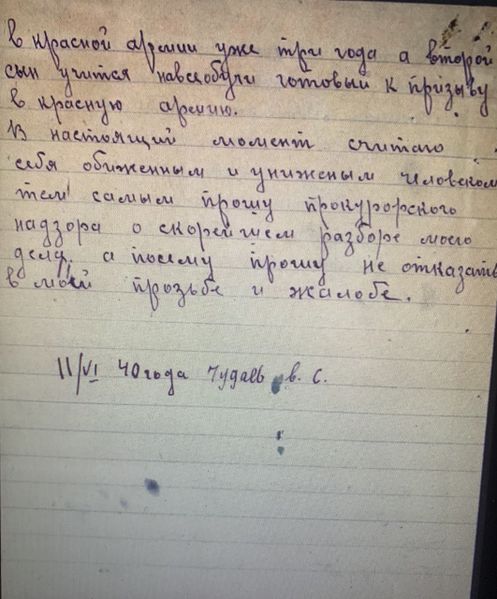 в красной армии уже три года а второй
сын учится навсобули готовый к призыву
в красную армию.
В настоящий момент считаю
себя обиженным и униженым человеком
тем самым прошу прокурорского
надзора о скорейшем разборе моего
дела, а посему прошу не отказать
в моей прозьбе и жалобе.
11/VI 40 года Чудаев в. С.